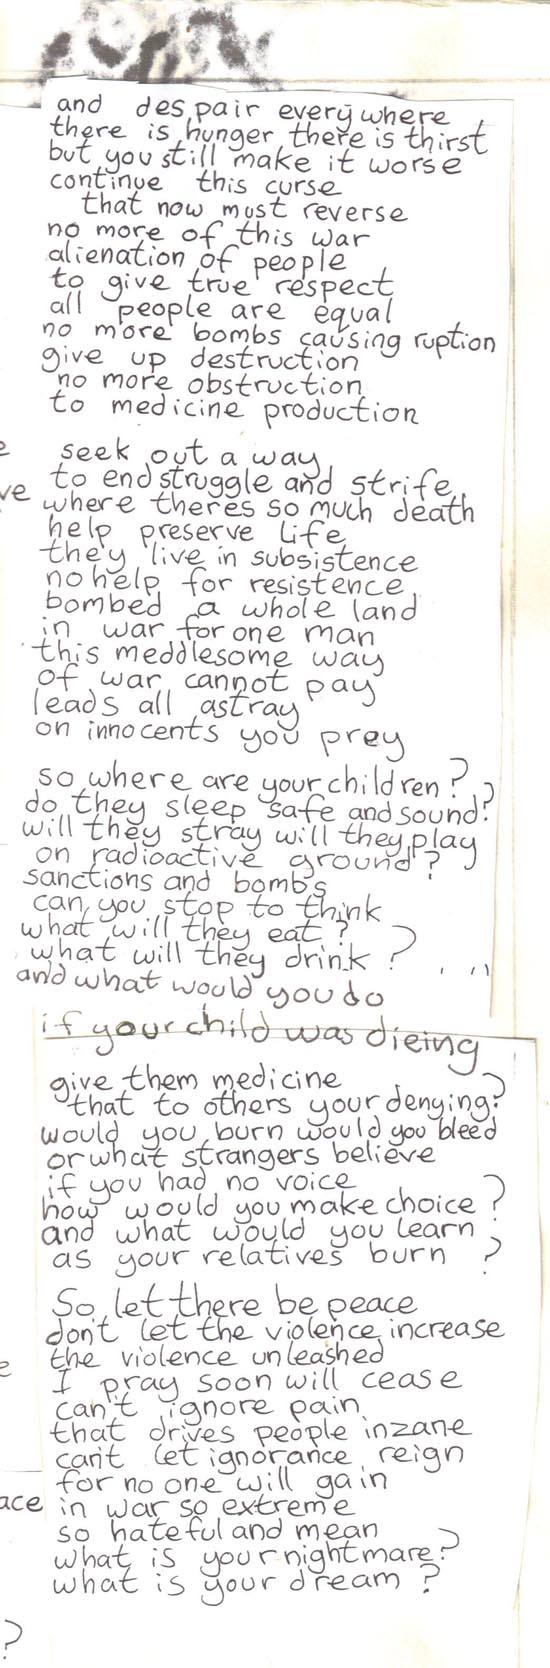 and despair everywhere
there is hunger there is thirst
but you still make it worse
continue this curse
that now must reverse
no more of this war
alienation of people
to give true respect
all people are equal
no more bombs causing ruption
give up destruction
no more obstruction
to medicine production
seek out a way
to end struggle and strife
where theres so much death
help preserve life
they live in subsistence
no help for resistence
bombed a whole land
in war for one man
this meddlesome way
of war cannot pay
leads all astray
on innocents you prey
so where are your children?
do they sleep safe and sound?
will they stray will they play
on radioactive ground?
sanctions and bombs
can you stop to think
what will they eat?
what will they drink?
and what would you do
if your child was dieing
give them medicine
that to others your denying?
would you burn would you bleed
or what strangers believe
if you had no voice
how would you make choice?
and what would you learn
as your relatives burn?
So let there be peace
don't let the violence increase
the violence unleashed
I pray soon will cease
can't ignore pain
that drives people inzane
can't let ignorance reign
for no one will gain
in war so extreme
so hateful and mean
what is your nightmare?
what is your dream?